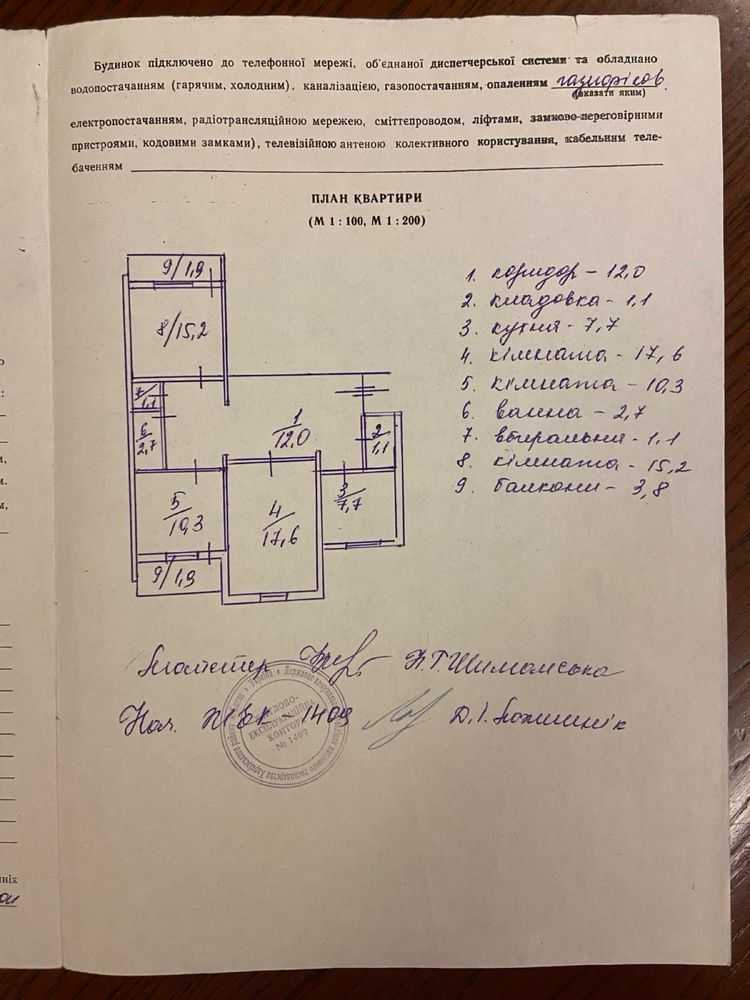 Будинок підключено до телефонної мережі, об'єднаної диспетчерської системи та обладнано
водопостачанням (гарячим, холодним), каналізацією, газопостачанням, опаленням
(вказати яким)
електропостачанням, радіотрансляційною мережею, сміттєпроводом, ліфтами, замково-переговірними
пристроями, кодовими замками), телевізійною антеною колективного користування, кабельним теле-
баченням
ПЛАН КВАРТИРИ
(М 1 : 100, М 1 : 200)
9/1,9
8/15,2
7/1,1
6/2,7
1/12,0
2/1,1
5/10,3
4/17,6
3/7,7
9/1,9
1. коридор – 12,0
2. кладовка – 1,1
3. кухня – 7,7
4. кімната – 17,6
5. кімната – 10,3
6. ванна – 2,7
7. вбиральня – 1,1
8. кімната – 15,2
9. балкони – 3,8
Нач. ЖЕК 1409
КОНТОРА
№ 1409